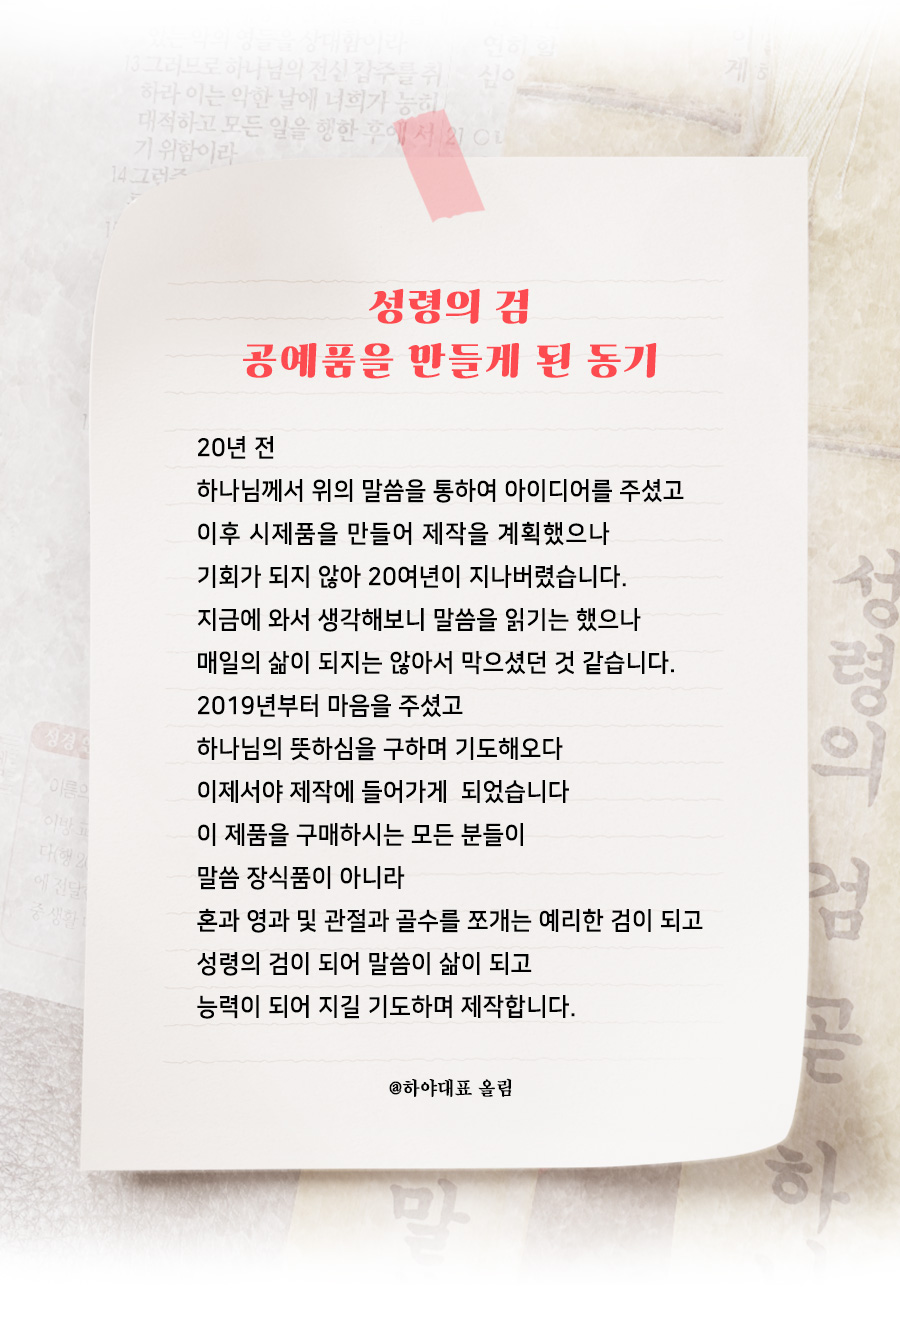 13 그러므로 하나님의 전신 갑주를 취
하라 이는 악한 날에 너희가 능히
대적하고 모든 일을 행한 후에 서
기 위함이라
성령의 검
공예품을 만들게 된 동기
20년 전
하나님께서 위의 말씀을 통하여 아이디어를 주셨고
이후 시제품을 만들어 제작을 계획했으나
기회가 되지 않아 20여년이 지나버렸습니다.
지금에 와서 생각해보니 말씀을 읽기는 했으나
매일의 삶이 되지는 않아서 막으셨던 것 같습니다.
2019년부터 마음을 주셨고
하나님의 뜻하심을 구하며 기도해오다
이제서야 제작에 들어가게  되었습니다
이 제품을 구매하시는 모든 분들이
말씀 장식품이 아니라
혼과 영과 및 관절과 골수를 쪼개는 예리한 검이 되고
성령의 검이 되어 말씀이 삶이 되고
능력이 되어 지길 기도하며 제작합니다.
@하야대표 올림
성령의 검 곧 하
말